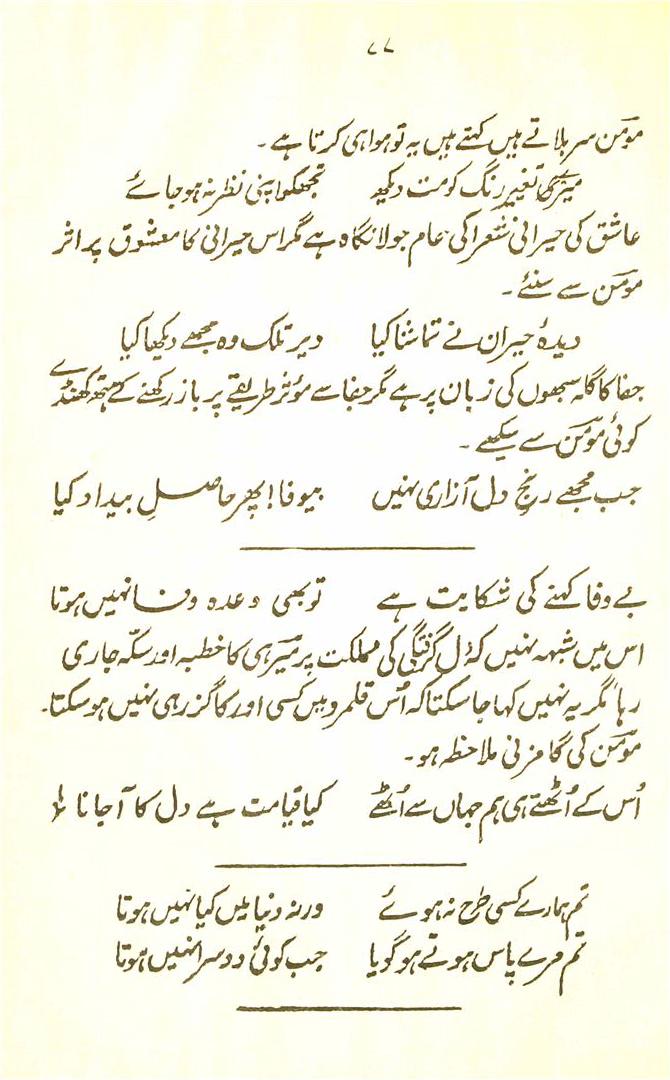 ۷۷
مومنؔ سر ہلاتے ہیں کہتے ہیں یہ تو ہوا ہی کرتا ہے۔
میرے تغیرِ رنگ کو مت دیکھ تجھکو اپنی نظر نہ ہو جائے
عاشق کی حیرانی شعرا کی عام جولانگاہ ہے مگر اس حیرانی کا معشوق پر اثر
مومنؔ سے سنئے۔
دیدۂ حیران نے تماشا کیا دیر تلک وہ مجھے دیکھا کیا
جفا کا گلہ سبھوں کی زبان پر ہے مگر جفا سے مؤثر طریقے پر باز رکھنے کے ہتھکھنڈے
کوئی مومنؔ سے سیکھے۔
جب مجھے رنج دل آزاری نہیں بیوفا! پھر حاصلِ بیداد کیا
بے وفا کہنے کی شکایت ہے تو بھی وعدہ وفا نہیں ہوتا
اس میں شبہہ نہیں کہ دل گرفتگی کی مملکت پر میرؔ ہی کا خطبہ اور سکّہ جاری
رہا مگر یہ نہیں کہا جا سکتا کہ اُس قلمرو میں کسی اور کا گزر ہی نہیں ہو سکتا۔
مومنؔ کی گامزنی ملاحظہ ہو۔
اُس کے اُٹھتے ہی ہم جہاں سے اُٹھے کیا قیامت ہے دل کا آ جانا
تم ہمارے کسی طرح نہ ہوئے ورنہ دنیا میں کیا نہیں ہوتا
تم مرے پاس ہوتے ہو گویا جب کوئی دوسرا نہیں ہوتا